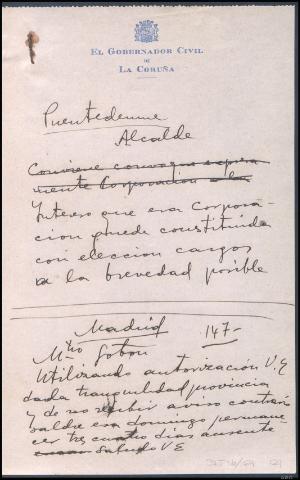 EL GOBERNADOR CIVIL
DE
LA CORUÑA
Puentedeume
Alcalde
Conviene convoque expresa
mente Corporación a la
Intereso que esa Corpora-
cion quede constituida
con eleccion cargos
a la brevedad posible
Madrid 147-
Mtro Gobon
Utilizando autorización V.E
dada tranquilidad provincia
y de no recibir aviso contrario
saldre esa domingo permane-
cer tres cuatro dias ausente
Saludo V E